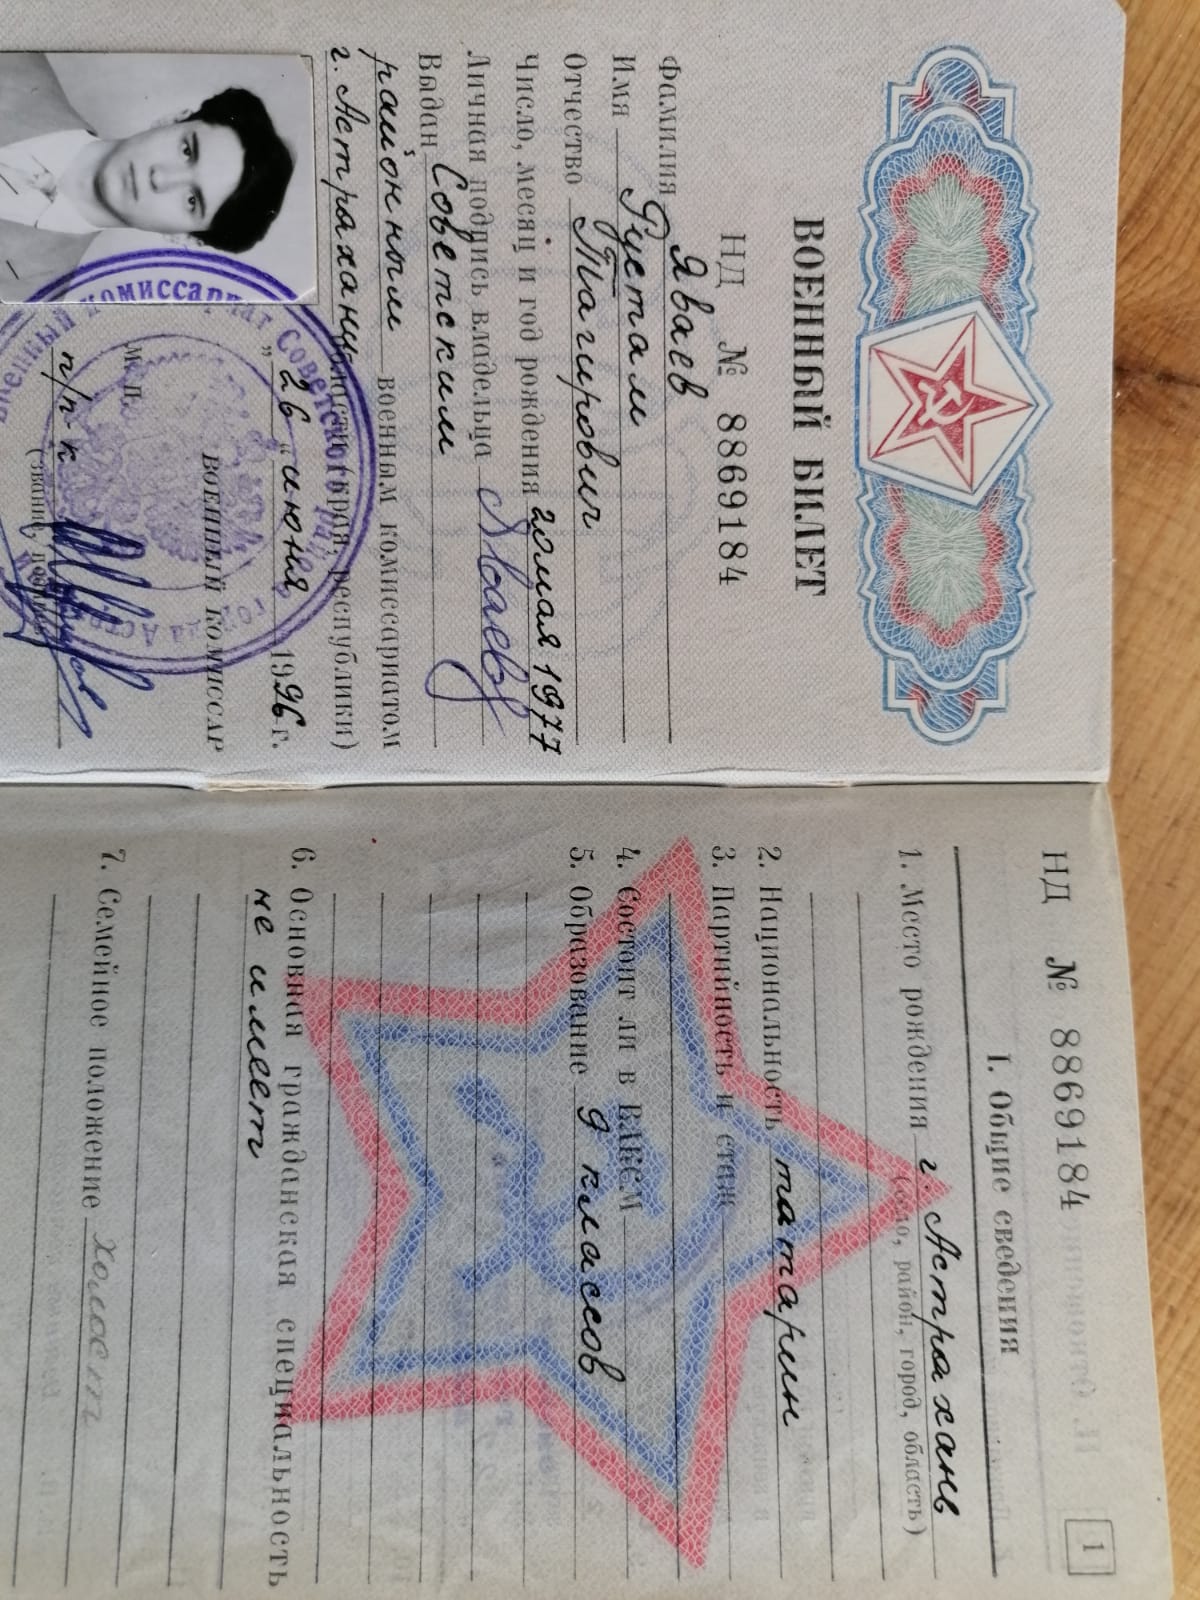 ВОЕННЫЙ БИЛЕТ
НД № 8869184
Фамилия Яваев
Имя Рустам
Отчество Тагирович
Число, месяц и год рождения 20 мая 1977
Личная подпись владельца
Выдан Советским
районным военным комиссариатом
г. Астрахани области (края, республики)
„26“ июня 1996 г.
М. П. ВОЕННЫЙ КОМИССАР
п/п-к
(звание, подпись)
НД № 8869184
1
I. Общие сведения
1. Место рождения г. Астрахань
(село, район, город, область)
2. Национальность татарин
3. Партийность и стаж
4. Состоит ли в ВЛКСМ
5. Образование 9 классов
6. Основная гражданская специальность
не имеет
7. Семейное положение холост